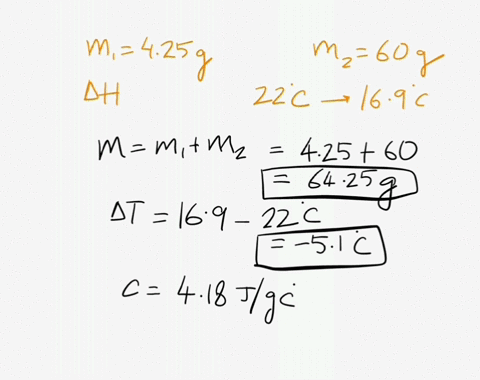 m₁ = 4.25g m₂ = 60g
ΔH 22°C → 16.9°C
m = m₁ + m₂ = 4.25 + 60
= 64.25g
ΔT = 16.9 - 22°C
= -5.1°C
C = 4.18 J/g°C